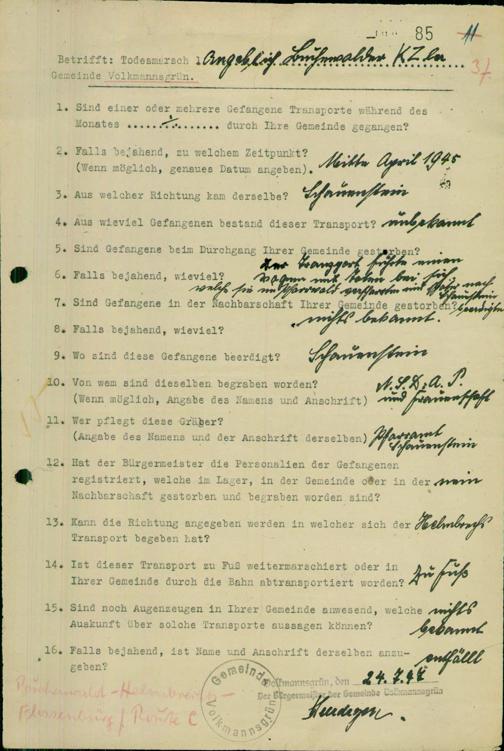 85 11
3/
Betrifft: Todesmarsch 1 Angeblich Buchenwalder KZler
Gemeinde Volkmannsgrün.
1. Sind einer oder mehrere Gefangene Transporte während des
Monates ...../........ durch Ihre Gemeinde gegangen?
2. Falls bejahend, zu welchem Zeitpunkt?
(Wenn möglich, genaues Datum angeben). Mitte April 1945
3. Aus welcher Richtung kam derselbe? Schauenstein
4. Aus wieviel Gefangenen bestand dieser Transport? unbekannt
5. Sind Gefangene beim Durchgang Ihrer Gemeinde gestorben?
Der Transport führte einen
6. Falls bejahend, wieviel? Wagen mit Toten bei sich
welche sie nach Schauenstein
7. Sind Gefangene in der Nachbarschaft Ihrer Gemeinde gestorben? beerdigte
nichts bekannt.
8. Falls bejahend, wieviel?
9. Wo sind diese Gefangene beerdigt? Schauenstein
10. Von wem sind dieselben begraben worden? N.S.D.A.P.
(Wenn möglich, Angabe des Namens und Anschrift) und Frauenschaft
11. Wer pflegt diese Gräber?
(Angabe des Namens und der Anschrift derselben) Pfarramt
Schauenstein
12. Hat der Bürgermeister die Personalien der Gefangenen
registriert, welche im Lager, in der Gemeinde oder in der nein
Nachbarschaft gestorben und begraben worden sind?
13. Kann die Richtung angegeben werden in welcher sich der Helmbrechts
Transport begeben hat?
14. Ist dieser Transport zu Fuß weitermarschiert oder in
Ihrer Gemeinde durch die Bahn abtransportiert worden? Zu Fuß
15. Sind noch Augenzeugen in Ihrer Gemeinde anwesend, welche nichts
Auskunft über solche Transporte aussagen können? bekannt
16. Falls bejahend, ist Name und Anschrift derselben anzu- entfällt
geben?
Volkmannsgrün, den 24.7.47
Der Bürgermeister der Gemeinde Volkmannsgrün
Gemeinde Volkmannsgrün
Buchenwald-Helmbrechts-
Flossenburg / Route C